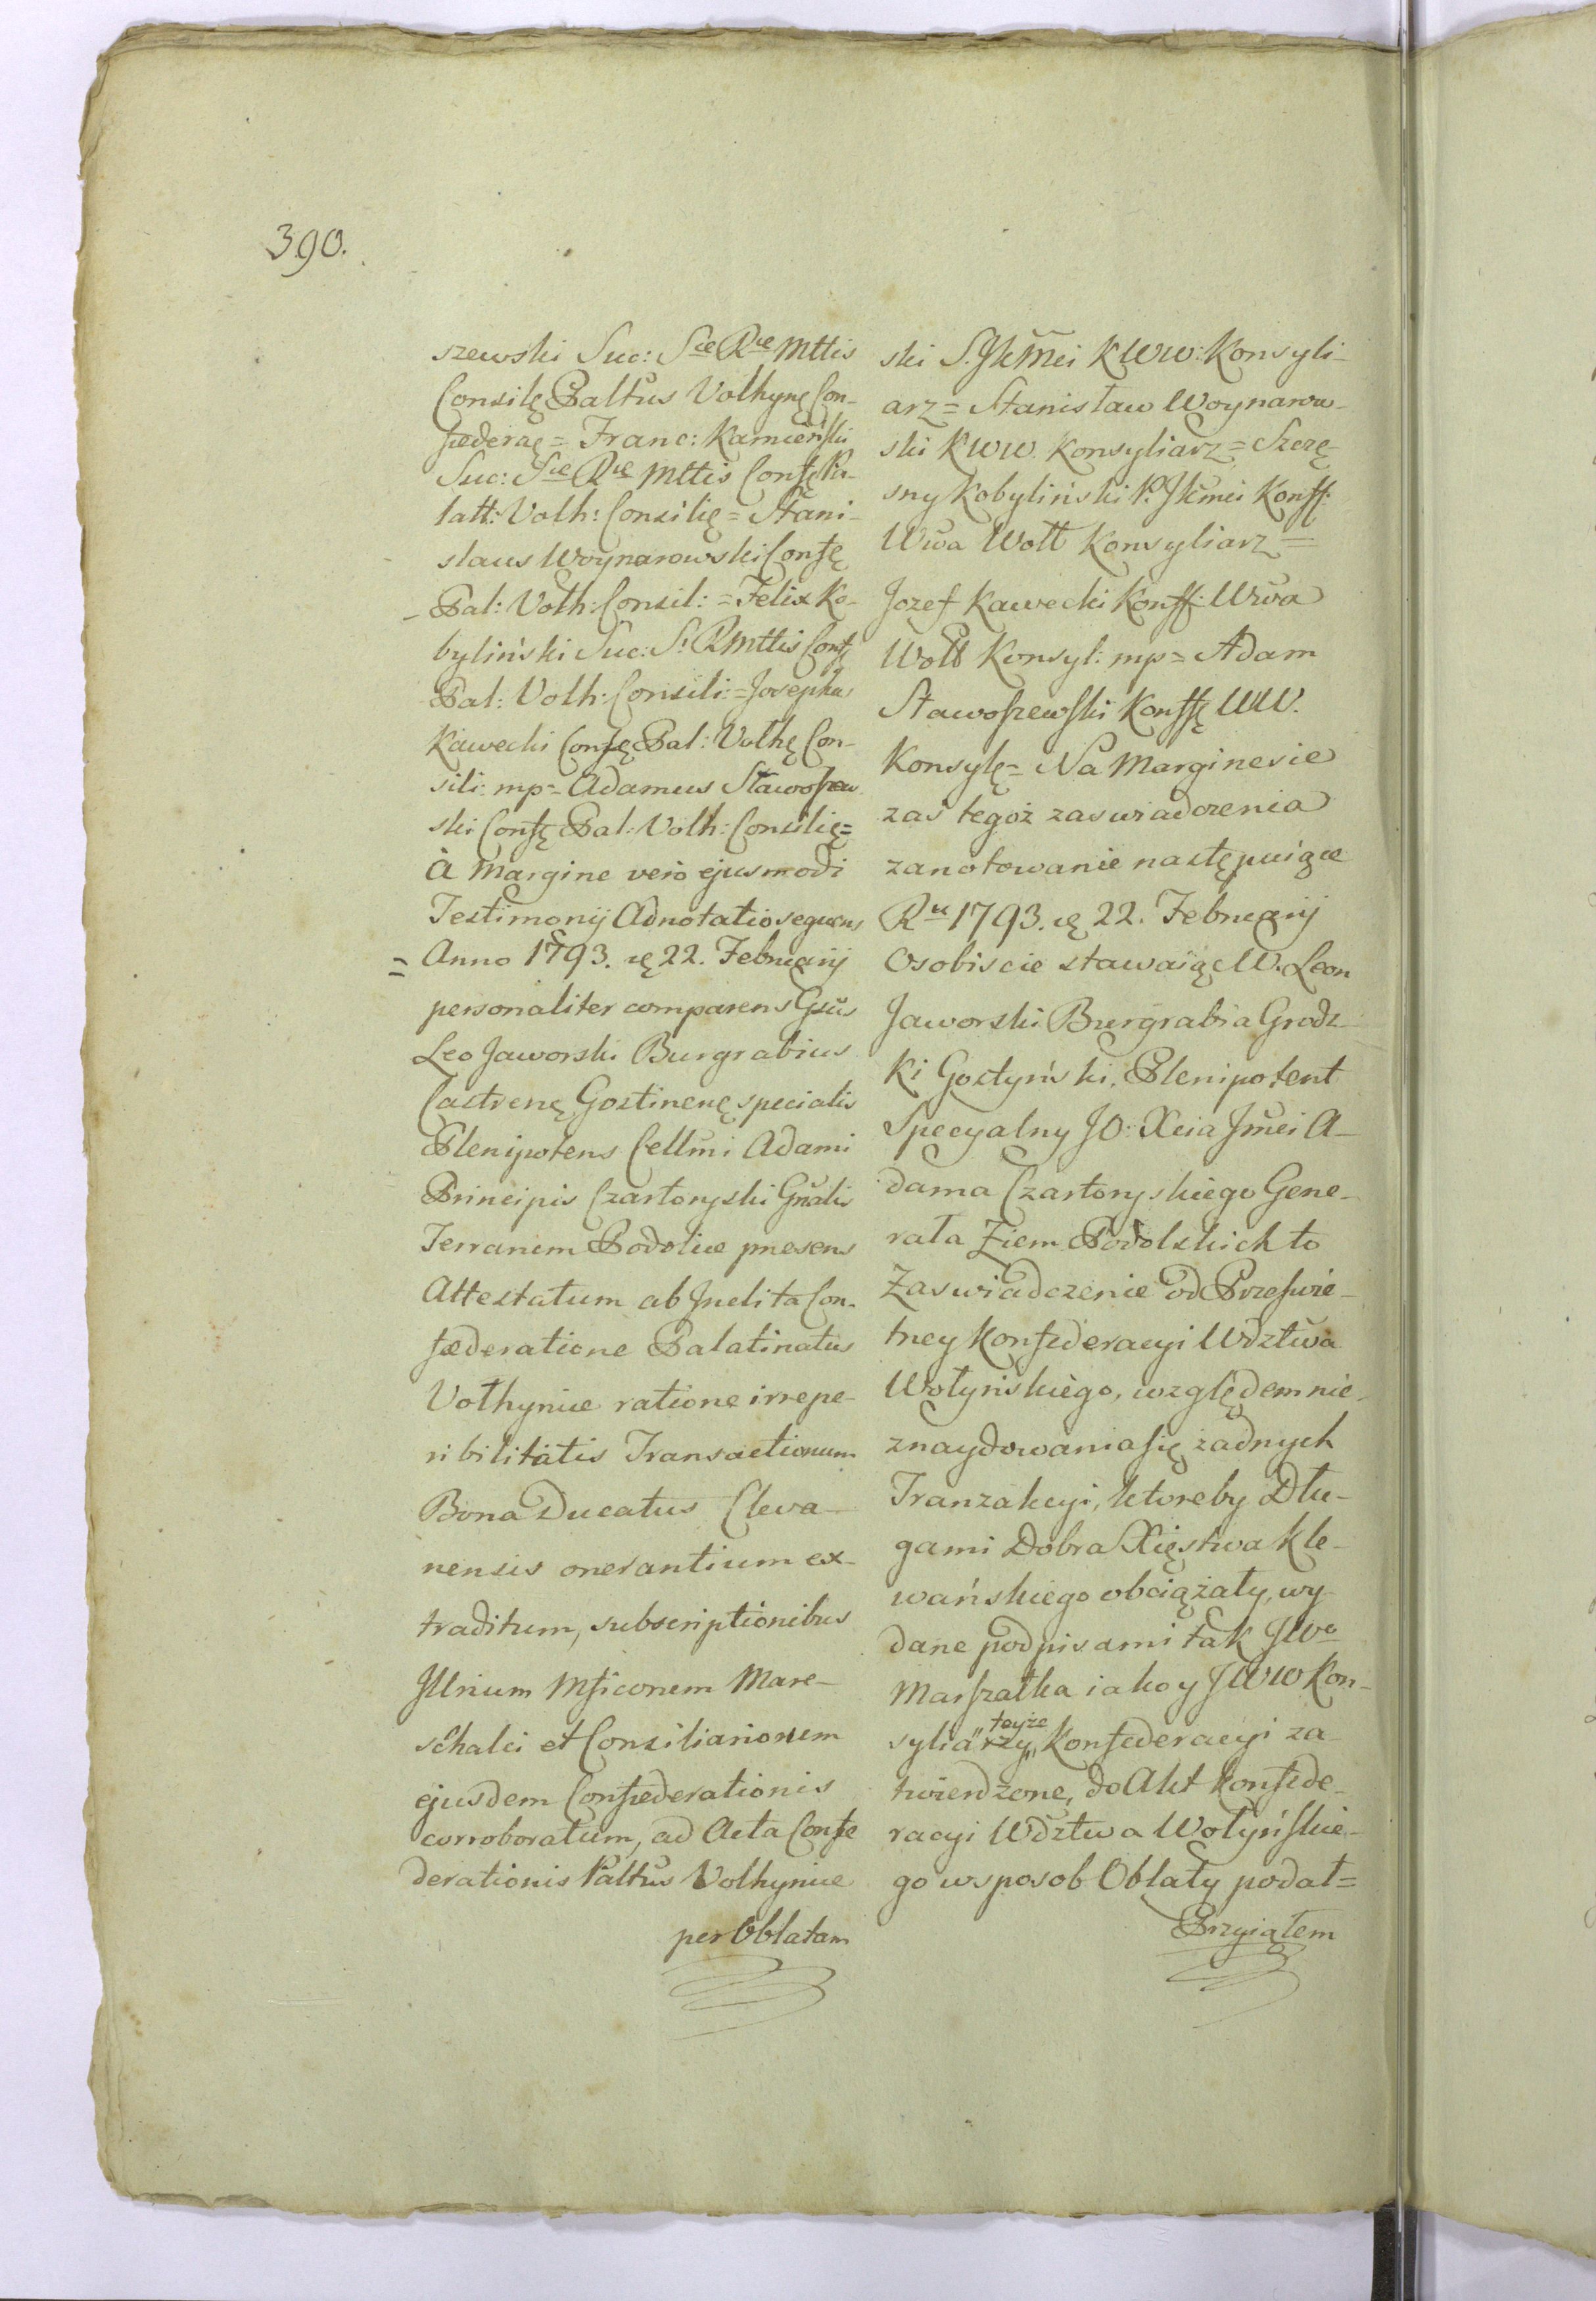 390.
szewski Suc: Sæ Ræ Mttis
Consilę Paltus Volhynę Con-
fæderaę = Franc: Kamieński
Suc: Sæ Ræ Mttis Confę Pa-
latt: Volh: Consilię = Stani-
slaus Woynarowski Confę
Pal: Volh: Consil: = Felix Ko-
byliński Suc: S: R Mttis Confę
Pal: Volh: Consili: = Josephus
Kawecki Confę Pal: Volhę Con-
sili: mp = Adamus Stawoszew
ski Confę Pal: Volh: Consilię =
à Margine verò ejusmodi
Testimonij Adnotatio sequens
= Anno 1793. ię 22. Februarij
personaliter comparens Gsus
Leo Jaworski Burgrabius
Castrenę Gostinenę specialis
Plenipotens Cellmi Adami
Principis Czartoryski Gnalis
Terrarum Podoliæ præsens
Attestatum ab Inclita Con-
fæderatione Palatinatus
Volhyniæ ratione irrepe-
ribilitatis Transactionum
Bona Ducatus Cleva-
nensis onerantium ex-
traditum, subscriptionibus
Illrium Mficorum Mare-
schalci et Consiliariorum
ejusdem Confæderationis
corroboratum, ad Acta Confe
derationis Paltus Volhyniæ
per Oblatam
ski S. Jkmci KWW: Konsyli-
arz = Stanisław Woynarow-
ski KWW. Konsyliarz = Szczę-
sny Kobyliński P. Jkmci Konff:
Wwa Woll Konsyliarz =
Jozef Kawecki Konff: Wwa
Woll Konsyl: mp = Adam
Stawoszewski Konffę WW.
Konsylę = Na Marginesie
zaś tegoż zaswiadczenia
zanotowanie następuiące
Ru 1793. ię 22. Februarij
Osobiscie stawaiąc W. Leon
Jaworski Burgrabia Grodz-
ki Gostyński, Plenipotent
Specyalny JO: Xcia Jmci A-
dama Czartoryskiego Gene-
rała Ziem Podolskich to
Zaswiadczenie od Przeswie-
tney Konfederacyi Wdztwa
Wołyńskiego, względem nie-
znaydowania się żadnych
Tranzakcyi, ktoreby Dłu-
gami Dobra Xięstwa Kle-
wańskiego obciążały, wy
dane podpisami tak JWo
Marszałka iako y JWW Kon-
syliarzy „teyże„ Konfederacyi za
twierdzone, do Akt Konfede-
racyi Wdztwa Wołyńskie-
go w sposob Oblaty podał =
Przyiąłem